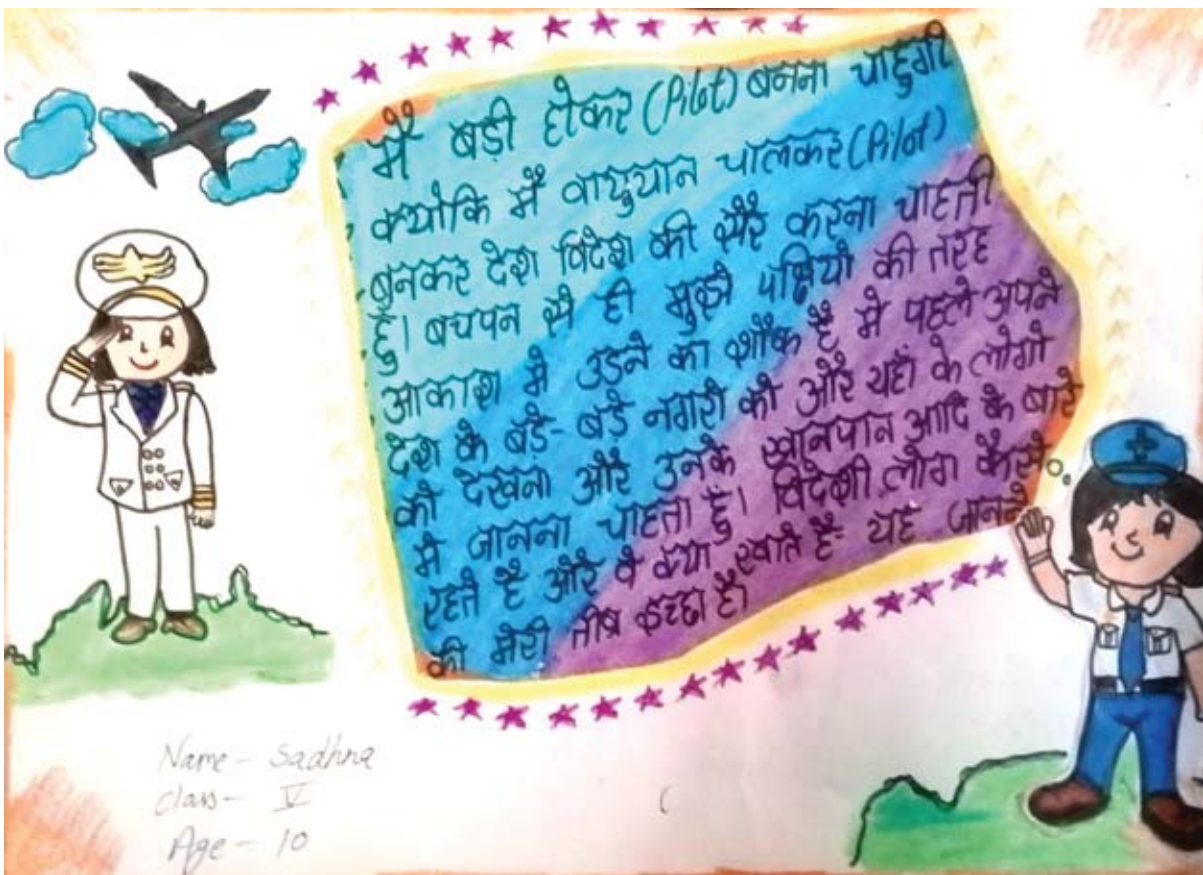 मैं बड़ी होकर (Pilot) बनना चाहुगी
क्योकि मैं वायुयान चालकर (Pilot)
बनकर देश विदेश की सैर करना चाहती
हुँ। बचपन से ही मुझे पक्षियो की तरह
आकाश मे उड़ने का शौक है मे पहले अपने
देश के बडे-बड़े नगरो को और यहाँ के लोगो
को देखना और उनके खानपान आदि के बारे
मे जानना चाहता हुँ। विदेशी लोग कैसे
रहते है और वे क्या खाते है- यह जानने
की मेरी तीव्र इच्छा है।
Name - Sadhna
Class - V
Age - 10